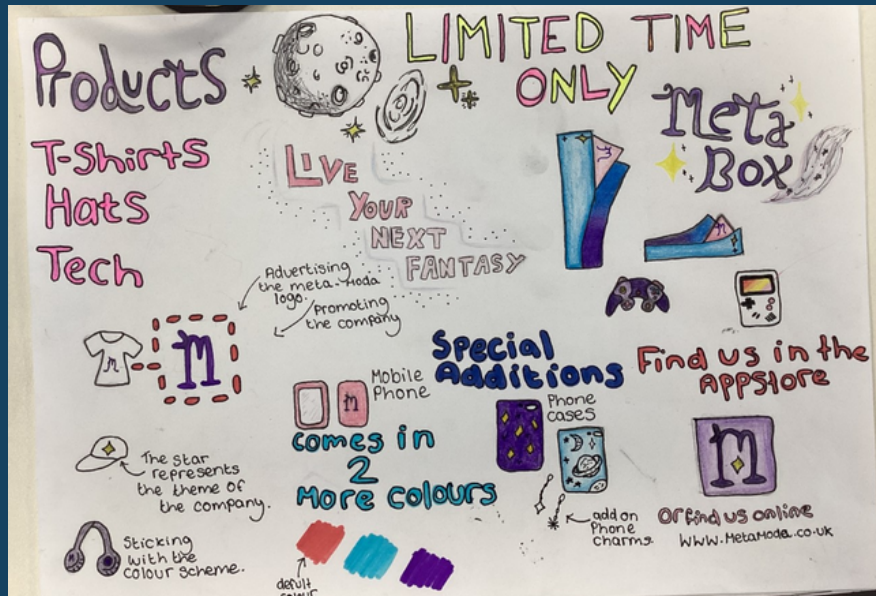 Products
LIMITED TIME
ONLY
Meta
Box
T-Shirts
Hats
Tech
LIVE
YOUR
NEXT
FANTASY
Advertising
the meta-moda
logo.
Promoting
the company
M
M
The star
represents
the theme of
the company.
Sticking
with the
colour scheme.
Mobile
Phone
M
Comes in
2
More colours
defult
colour
Special
Additions
Phone
cases
add on
Phone
charms.
Find us in the
APPStore
M
Or find us online
WWW.MetaModa.co.uk